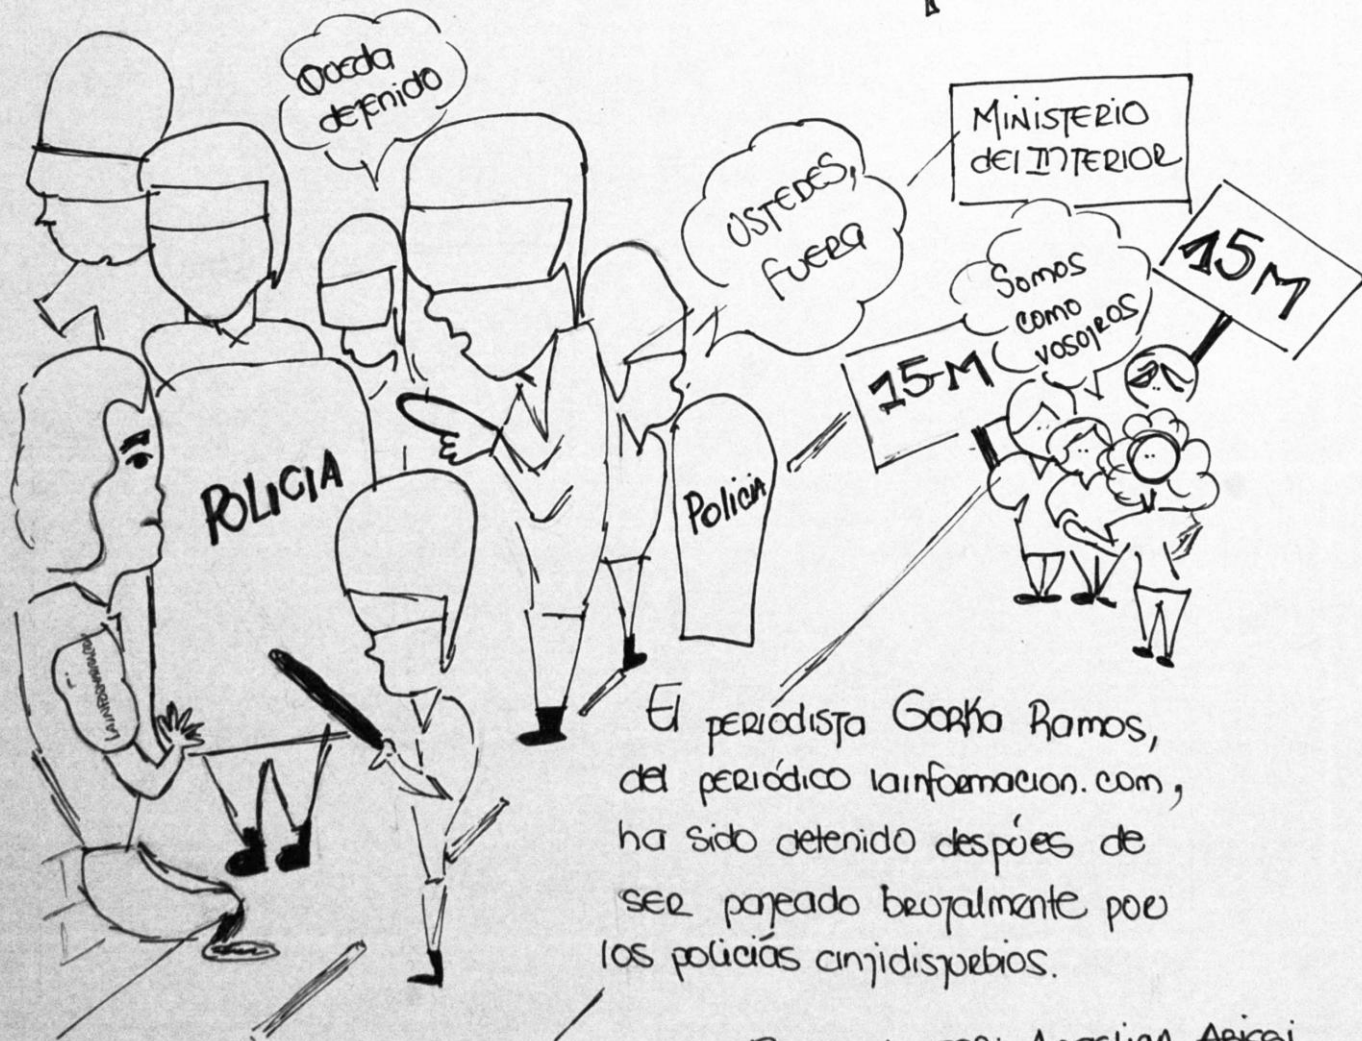 Queda
detenido
USTEDES,
FUERA
MINISTERIO
del INTERIOR
Somos
como
vosotros
15M
15-M
POLICIA
Policia
LAINFORMACION
El periodista Gorka Ramos,
del periódico lainformacion.com,
ha sido detenido despúes de
ser pateado brutalmente por
los policiás antidisturbios.
Angelina